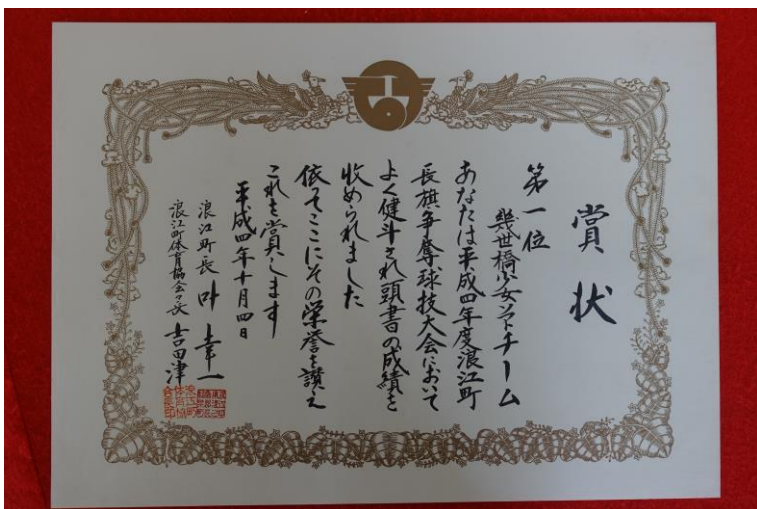 賞状
第一位
幾世橋少女ソフトチーム
あなたは平成四年度浪江町
長旗争奪球技大会において
よく健斗され頭書の成績を
収められました
依てここにその栄誉を讃え
これを賞します
平成四年十月四日
浪江町長 叶幸一
浪江町体育協会々長 吉田津